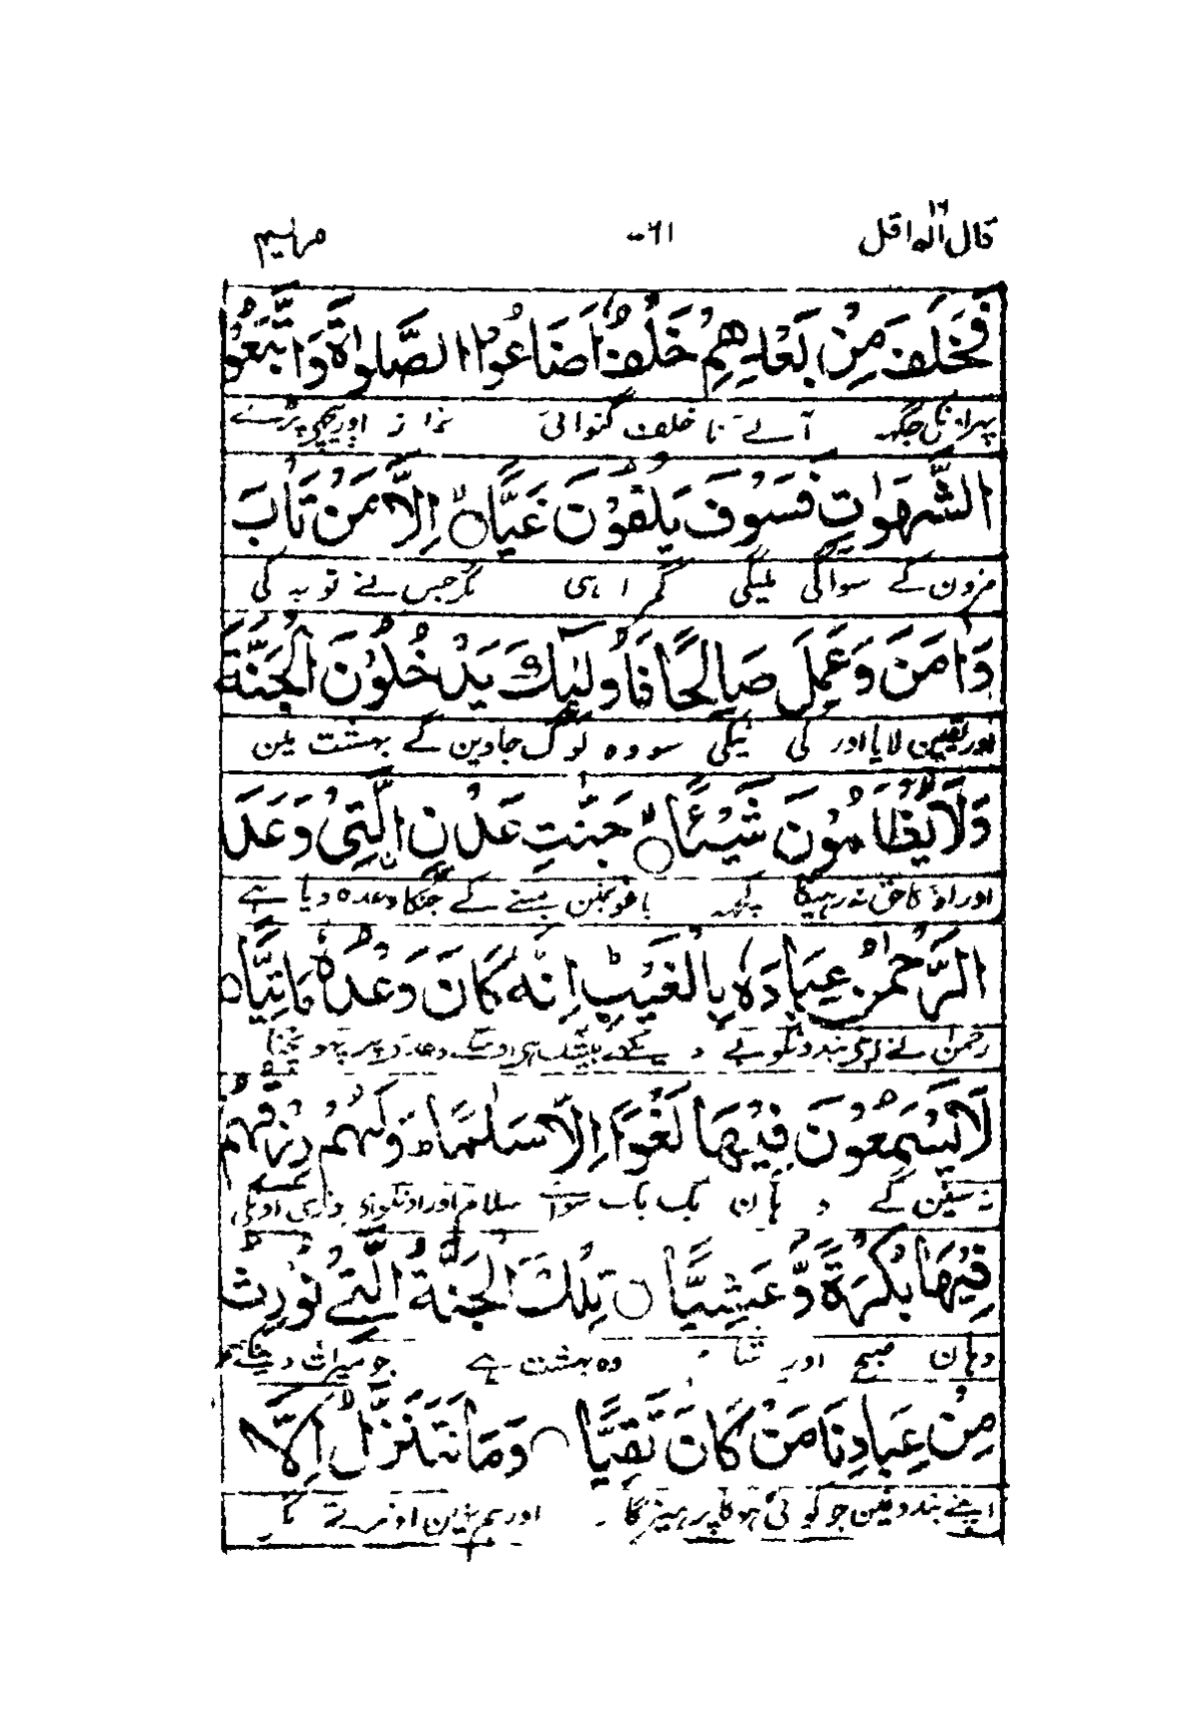 قال الم اقل ١٦ ٦١ مريم
فَخَلَفَ مِنْ بَعْدِهِمْ خَلْفٌ اَضَاعُوا الصَّلٰوةَ وَاتَّبَعُوا
جگہہ آئے نا خلف گنوائی نماز اور پیچھے پڑے
الشَّهَوٰتِ فَسَوْفَ يَلْقَوْنَ غَيًّا ۙ اِلَّا مَنْ تَابَ
مزون کے سو آگی ملیگی گمراہی مگر جس نے توبہ کی
وَاٰمَنَ وَعَمِلَ صَالِحًا فَاُولٰٓئِكَ يَدْخُلُوْنَ الْجَنَّةَ
اور یقین لایا اور کی نیکی سو وہ لوگ جاوین گے بہشت مین
وَلَا يُظْلَمُوْنَ شَيْئًا ۙ جَنّٰتِ عَدْنِ ۨالَّتِيْ وَعَدَ
اور اونکا حق نہ رہیگا کچھہ باغونمین بسنے کے جنکا وعدہ دیا ہے
الرَّحْمٰنُ عِبَادَهٗ بِالْغَيْبِ اِنَّهٗ كَانَ وَعْدُهٗ مَاْتِيًّا
رحمن نے اپنی بندونکو بے دیکھے بیشک ہی اوسکے وعدہ پر پہونچنا
لَا يَسْمَعُوْنَ فِيْهَا لَغْوًا اِلَّا سَلٰمًا ط وَلَهُمْ رِزْقُهُمْ
نہ سنین گے وہان بک بک سوائے سلام اور اونکو ہی روزی اونکی
فِيْهَا بُكْرَةً وَّعَشِيًّا تِلْكَ الْجَنَّةُ الَّتِيْ نُوْرِثُ
وہان صبح اور شام وہ بہشت ہے جو میراث دینگے
مِنْ عِبَادِنَا مَنْ كَانَ تَقِيًّا وَمَا نَتَنَزَّلُ اِلَّا
اپنے بندونمین جو کوئی ہوگا پرہیزگار اور ہم نہین اوترتے مگر